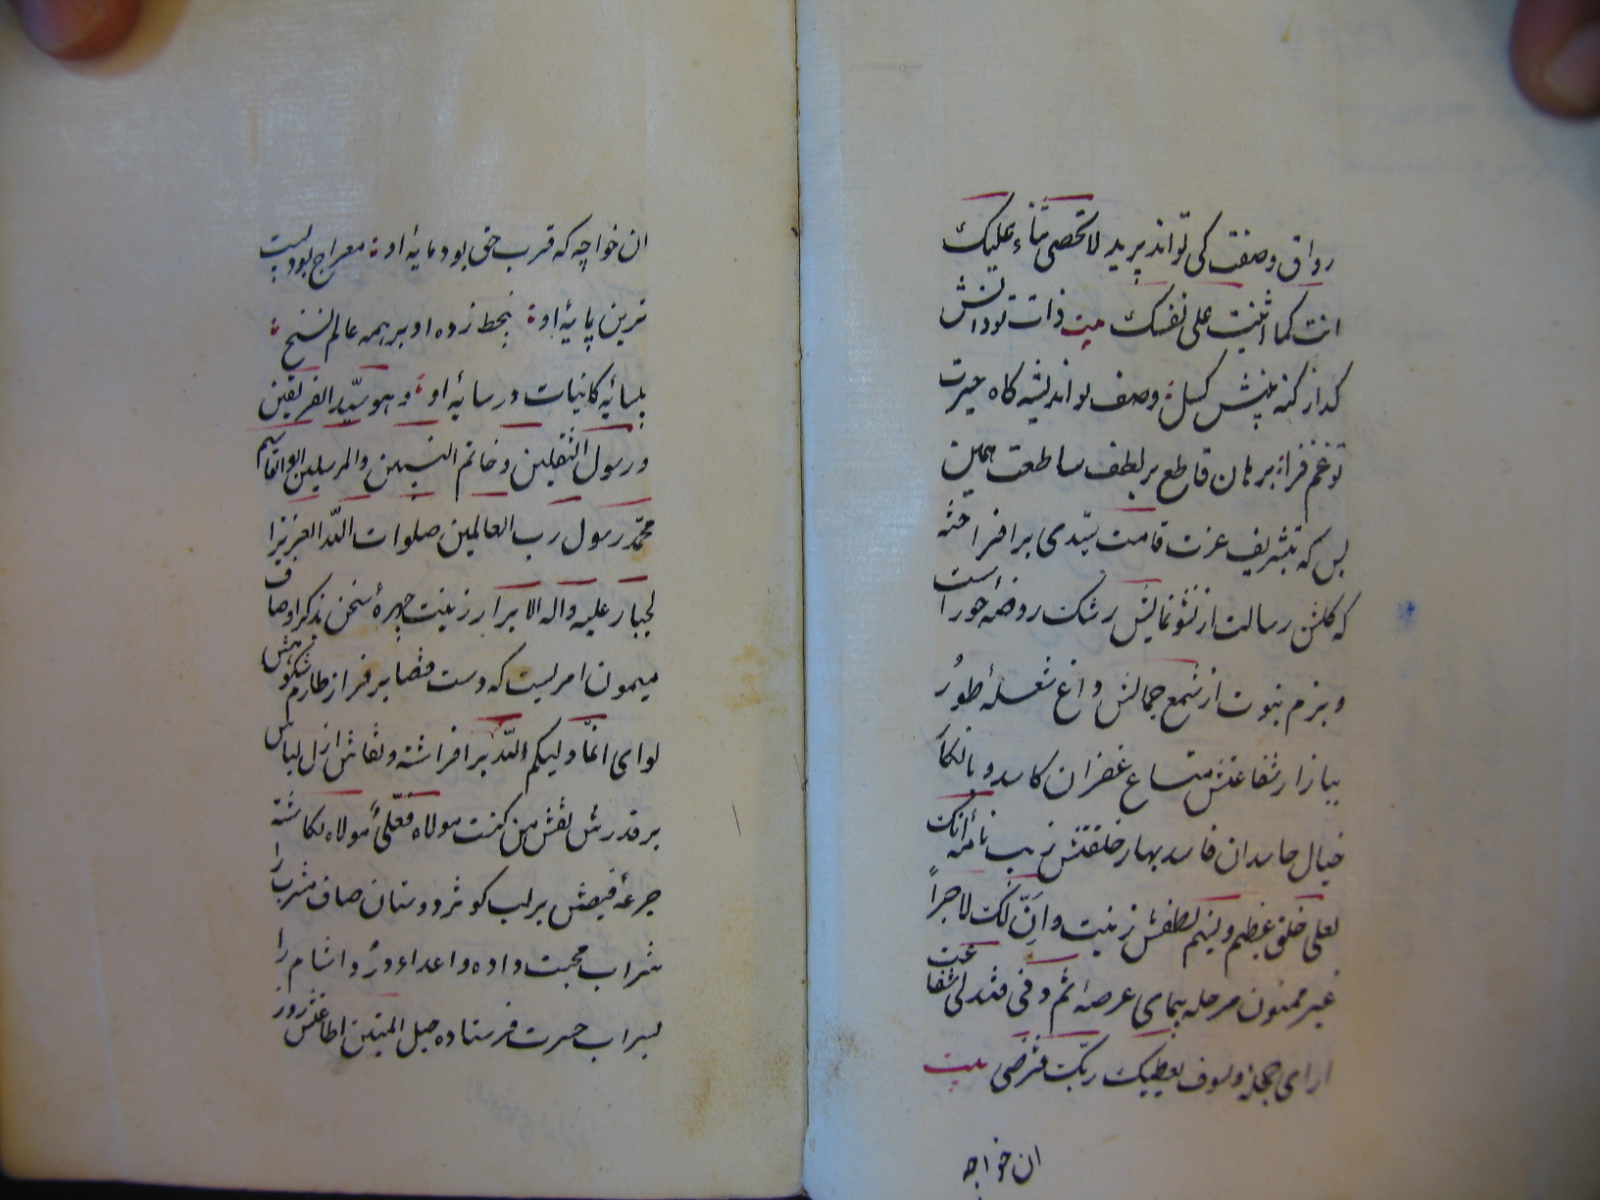 رواق وصفت کی تواند پرید لا تحصی ثناء علیک
انت کما اثنیت علی نفسک بیت ذات تو دانش
کداز کنه بینش کسل وصف تو اندیشه کاه حیرت
تو غم فزا برهان قاطع بر لطف ساطعت همین
بس که بتشریف عزت قامت سیدی برافراخته
که کلشن رسالت از نشو نمایش رشک روضه حوراست
و بزم نبوت از شمع جمالش داغ شعلهٔ طور
ببازار شفاعتش متاع غفران کاسد و با
خیال حاسدان فاسد بهار خلقتش زیب انک
لعلی خلق عظیم و نسیم لطفش زینت وان لک لاجراً
غیر ممنون مرحله پیمای عرصهٔ ثم دنی فتدلی شفاعت
ارای حجله ولسوف یعطیک ربک فترضی بیت
ان خواجه
ان خواجه که قرب حق بود مایهٔ او معراج بود پست
ترین پایهٔ او بخط زده او بر همه عالم نسخ
بسایه کاینات در سایه او وهو سید الفریقین
و رسول الثقلین و خاتم النبیین والمرسلین ابوالقاسم
محمد رسول رب العالمین صلوات الله العزیز ا
لجبار علیه واله الابرار زینت چهرهٔ سخن بذکر اوصاف
میمون امریست که دست قضا بر فراز طارم شکوهش
لوای انما ولیکم الله برافراشته و نقاش ازل لباس
بر قدرش نقش من کنت مولاه فعلی مولاه نکاشته
جرعهٔ فیضش بر لب کوثر دوستان صاف مشرب را
شراب محبت داده و اعداء درد اشام را
بسراب حسرت فرستاده حبل المتین اطاعتش روز